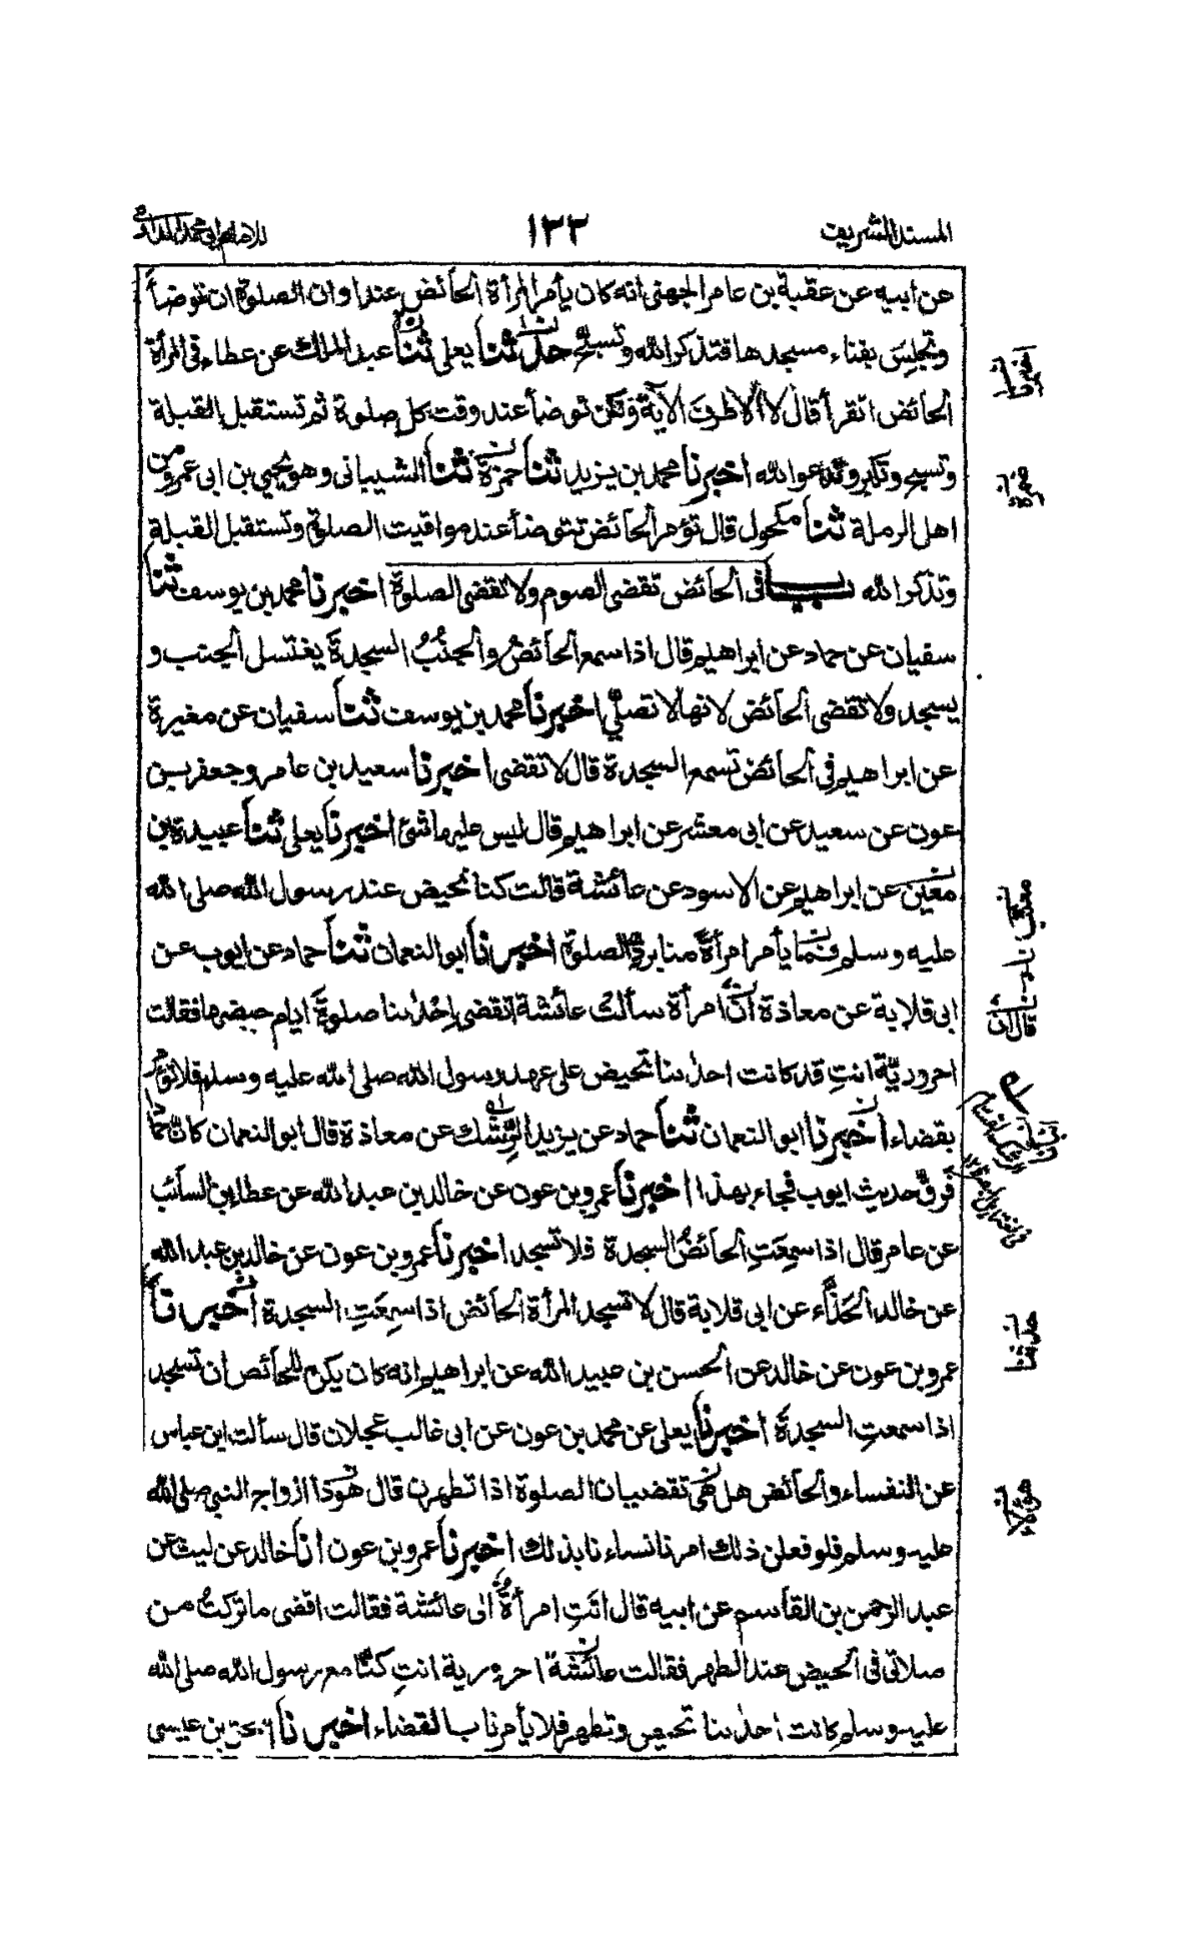 المسند الشريف
١٣٣
للامام ابي محمد الدارمي
عن ابيه عن عقبة بن عامر الجهني انه كان يأمر المرأة الحائض عند اوان الصلوة ان توضأ
وتجلس بفناء مسجدها فتذكر الله وتسبح حدثنا يعلى ثنا عبد الملك عن عطاء في المرأة
الحائض اتقرأ قال لا الا طرف الآية ولكن توضأ عند وقت كل صلوة ثم تستقبل القبلة
وتسبح وتكبر وتدعو الله اخبرنا محمد بن يزيد ثنا حمزة ثنا الشيباني وهو يحيى بن ابي عمرو من
اهل الرملة ثنا مكحول قال تؤمر الحائض تتوضأ عند مواقيت الصلوة وتستقبل القبلة
وتذكر الله باب في الحائض تقضي الصوم ولا تقضي الصلوة اخبرنا محمد بن يوسف ثنا
سفيان عن حماد عن ابراهيم قال اذا سمع الحائضُ والجنُبُ السجدةَ يغتسل الجنب و
يسجد ولا تقضي الحائض لانها لا تصلي اخبرنا محمد بن يوسف ثنا سفيان عن مغيرة
عن ابراهيم في الحائض تسمع السجدة قال لا تقضي اخبرنا سعيد بن عامر وجعفر بن
عون عن سعيد عن ابي معشر عن ابراهيم قال ليس عليها شئ اخبرنا يعلى ثنا عبيدة بن
مغين عن ابراهيم عن الاسود عن عائشة قالت كنا نحيض عند رسول الله صلى الله
عليه وسلم فما يأمر امرأة منا برد الصلوة اخبرنا ابو النعمان ثنا حماد عن ايوب عن
ابي قلابة عن معاذة ان امرأة سألت عائشة اتقضي احدٰىنا صلوة ايام حيضها فقالت
احروريّة انتِ قد كانت احدٰىنا تحيض على عهد رسول الله صلى الله عليه وسلم فلا تؤمر
بقضاء اخبرنا ابو النعمان ثنا حماد عن يزيد الرشك عن معاذة قال ابو النعمان كأنّ حمادا
فرق حديث ايوب فجاء بهذا اخبرنا عمرو بن عون عن خالد بن عبد الله عن عطاء بن السائب
عن عامر قال اذا سمعَتِ الحائضُ السجدة فلا تسجد اخبرنا عمرو بن عون عن خالد بن عبد الله
عن خالد الحذّاء عن ابي قلابة قال لا تسجد المرأة الحائض اذا سمعَتِ السجدة اخبرنا
عمرو بن عون عن خالد عن الحسن بن عبيد الله عن ابراهيم انه كان يكره للحائض ان تسجد
اذا سمعتِ السجدةَ اخبرنا يعلى عن محمد بن عون عن ابي غالب عجلان قال سألت ابن عباس
عن النفساء والحائض هل تقضيان الصلوة اذا تطهرن قال هوذا ازواج النبي صلى الله
عليه وسلم فلو فعلن ذلك امرنا نساءنا بذلك اخبرنا عمرو بن عون انا خالد عن ليث عن
عبد الرحمن بن القاسم عن ابيه قال اتت امرأة الى عائشة فقالت اقضي ما تركتُ من
صلاتي في الحيض عند الطهر فقالت عائشة احرورية انتِ كنّا مع رسول الله صلى الله
عليه وسلم كانت احدٰىنا تحيض وتطهر فلا يأمرنا بالقضاء اخبرنا اسحٰق بن عيسى
اخبرنا
ضمرة
معتب
قال ان
حدثنا
هؤلاء